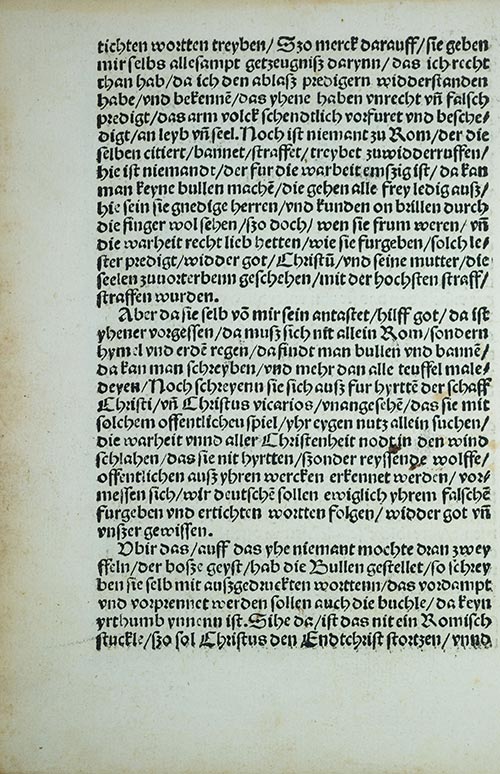 tichten wortten treyben/ Szo merck darauff/ sie geben
mir selbs allesampt getzeugnisz darynn/ das ich recht
than hab/ da ich den ablasz predigern widderstanden
habe/ vnd bekennē/ das yhene haben vnrecht vñ falsch
predigt/ das arm volck schendtlich vorfuret vnd besche⸗
digt/ an leyb vñ seel. Noch ist niemant zu Rom/ der die
selben citiert/ bannet/ straffet/ treybet zuwidderruffen/
hie ist niemandt/ der fur die warheit emszig ist/ da kan
man keyne bullen machē/ die gehen alle frey ledig ausz/
hie sein sie gnedige herren/ vnd kunden on brillen durch
die finger wol sehen/ szo doch/ wen sie frum weren/ vñ
die warheit recht lieb hetten/ wie sie furgeben/ solch le⸗
ster predigt/ widder got/ Christū/ vnd seine mutter/ die
seelen zuuorterbenn geschehen/ mit der hochsten straff/
straffen wurden.
Aber da sie selb vō mir sein antastet/ hilff got/ da ist
yhener vorgessen/ da musz sich nit allein Rom/ sondern
hymel vnd erdē regen/ da findt man bullen vnd bannē/
da kan man schreyben/ vnd mehr dan alle teuffel male⸗
deyen/ Noch schreyenn sie sich ausz fur hyrttē der schaff
Christi/ vñ Christus vicarios/ vnangesehē/ das sie mit
solchem offentlicheu spiel/ yhr eygen nutz allein suchen/
die warheit vnnd aller Christenheit nodt in den wind
schlahen/ das sie nit hyrtten/ szonder reyssende wolffe/
offentlichen ausz yhren wercken erkennet werden/ vor⸗
messen sich/ wir deutschē sollen ewiglich yhrem falschē
furgeben vnd ertichten wortten folgen/ widder got vñ
vnszer gewissen.
Vbir das/ auff das yhe niemant mochte dran zwey
ffeln/ der bosze geyst/ hab die Bullen gestellet/ so schrey
ben sie selb mit auszgedruckten worttenn/ das vordampt
vnd vorprennet werden sollen auch die buchle/ da keyn
yrthumb ynnenn ist. Sihe da/ ist das nit ein Romisch
stuckle/ szo sol Christus den Endtchrist stortzen/ vnnd